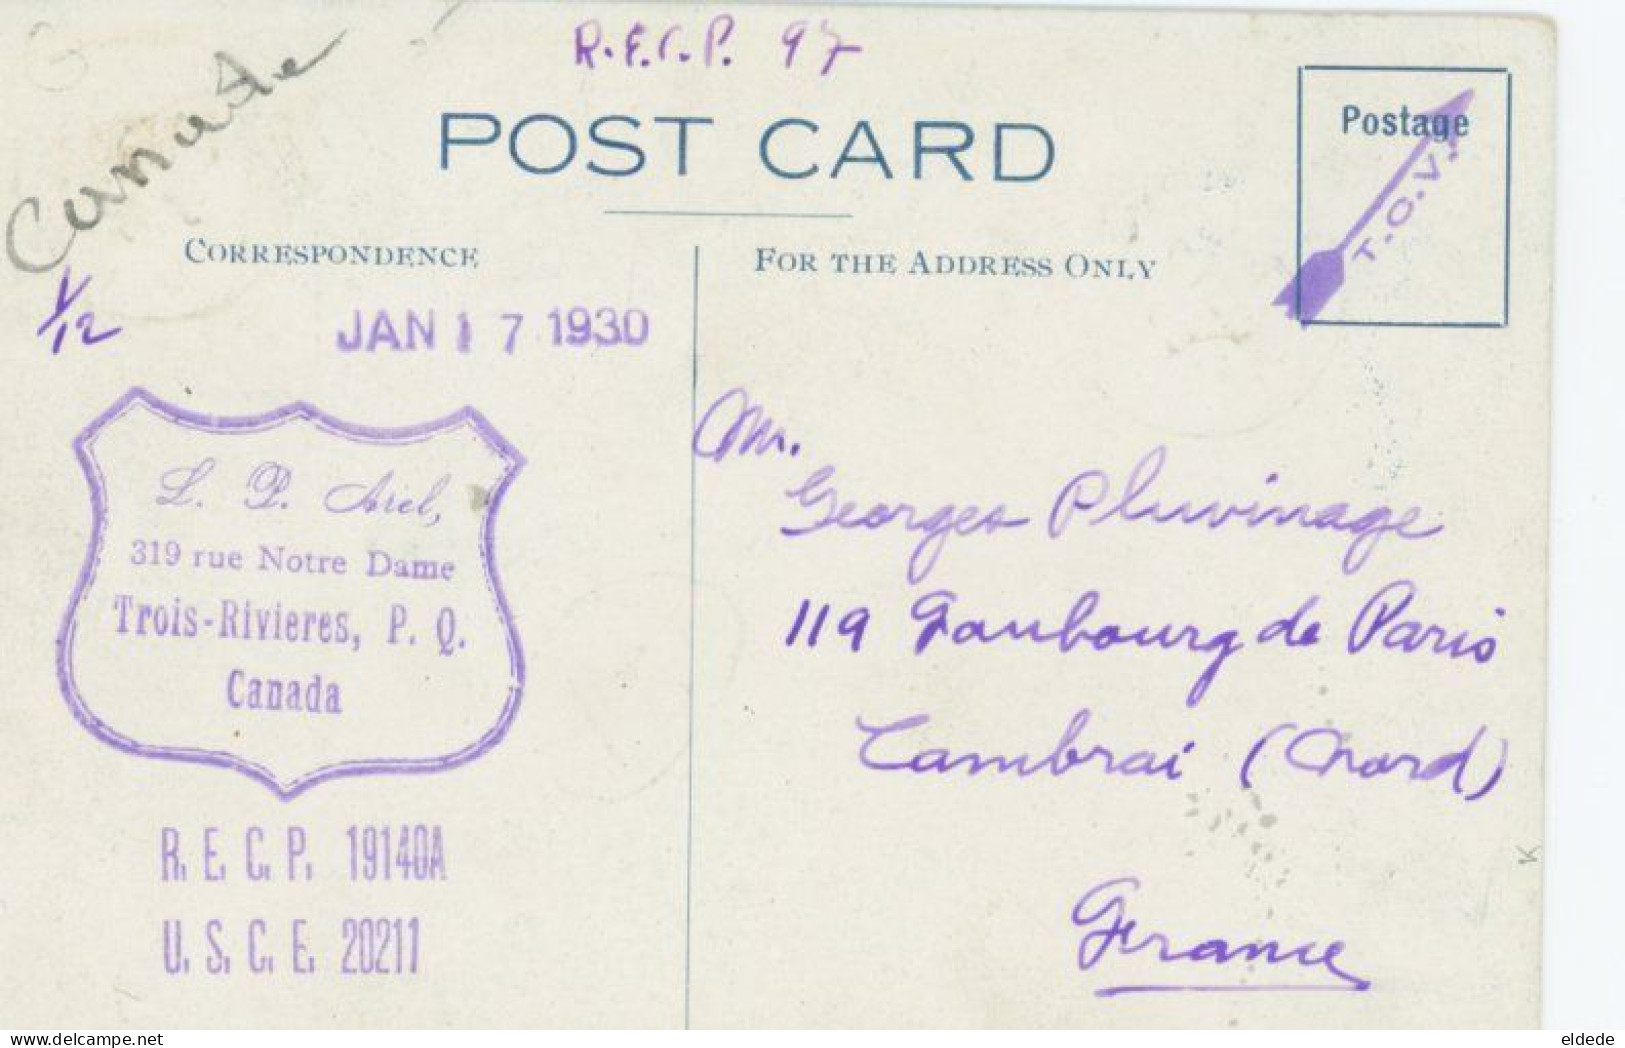 Canada
R.E.C.P. 97
POST CARD
Postage
T.C.V.
CORRESPONDENCE
FOR THE ADDRESS ONLY
1/12
JAN 17 1930
L. P. Ariel,
319 rue Notre Dame
Trois-Rivieres, P. Q.
Canada
R. E. C. P. 19140A
U. S. C. E. 20211
Mr.
Georges Pluvinage
119 Faubourg de Paris
Cambrai (Nord)
France
K
eldede